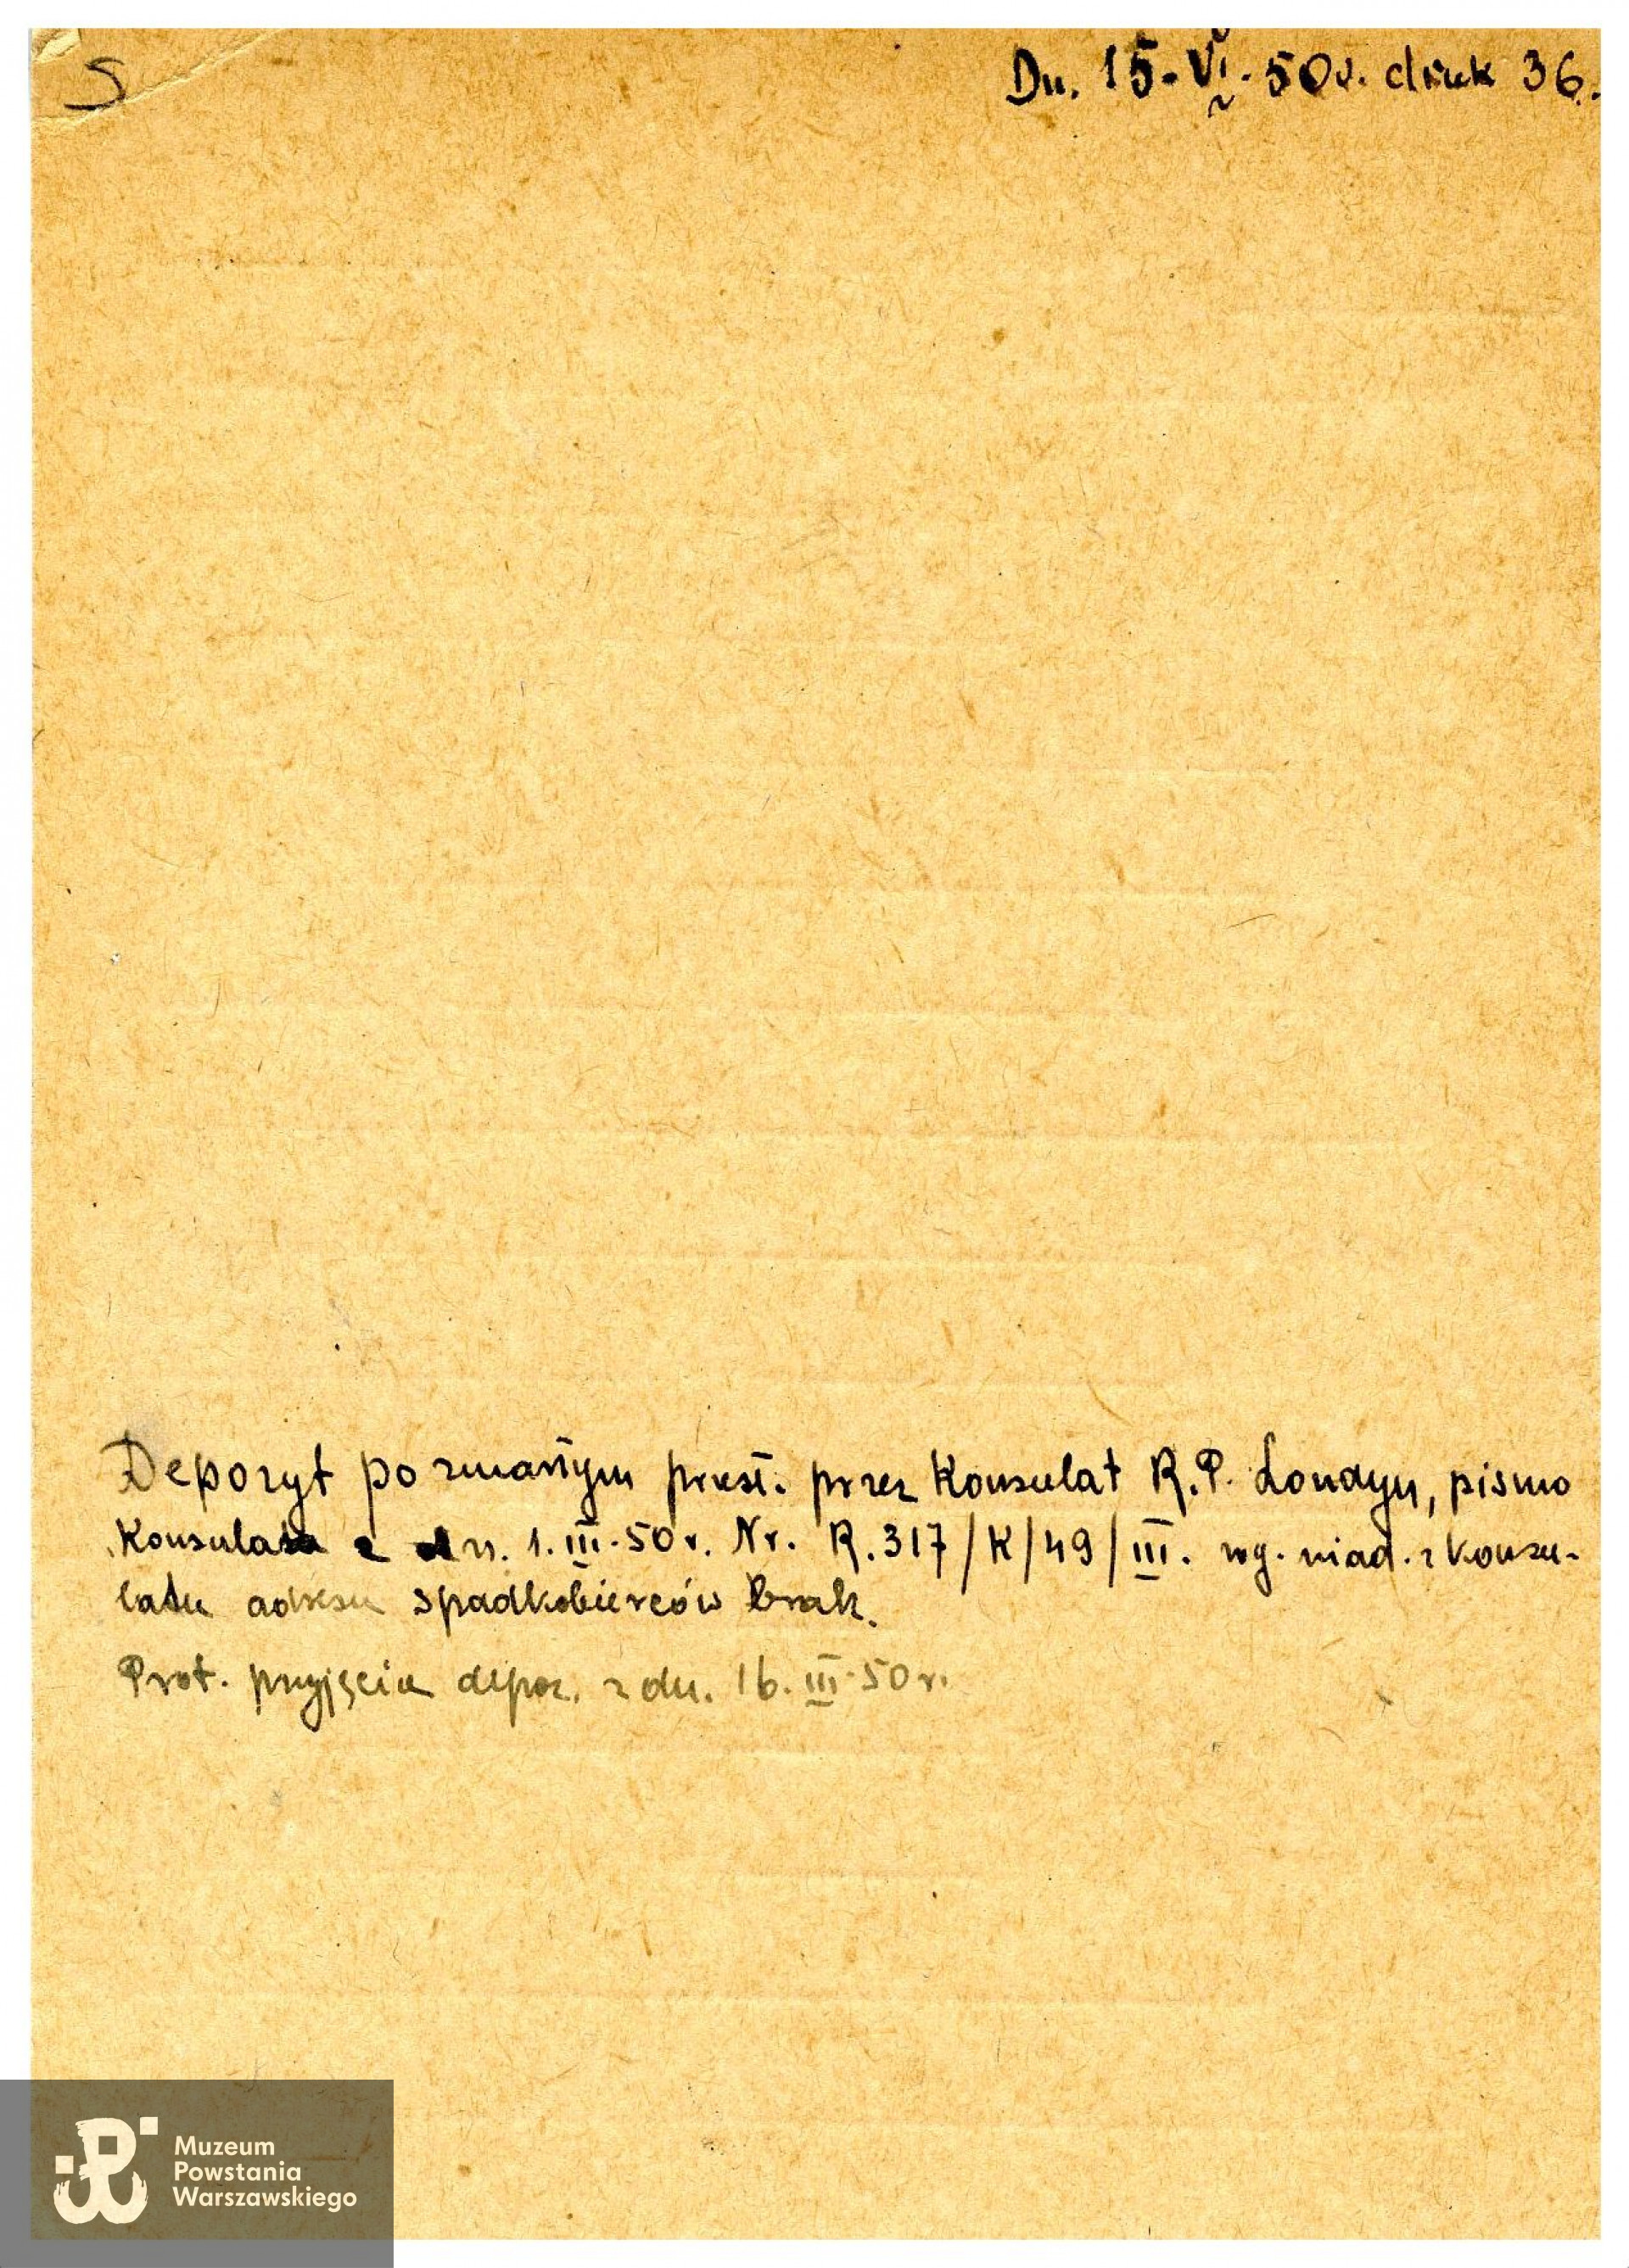 S
Dn. 15.VI.50r. druk 36.
Depozyt po zmarłym przesł. przez Konsulat R.P. Londyn, pismo
Konsulatu z dn. 1.III.50r. Nr. R.317/K/49/III. wg. wiad. z konsu-
latu adresu spadkobierców brak.
Prot. przyjęcia depoz. z dn. 16.III.50r.
Muzeum
Powstania
Warszawskiego